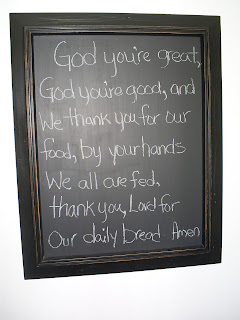 God you're great,
God you're good, and
We thank you for our
food, by your hands
We all are fed,
thank you, Lord for
Our daily bread Amen